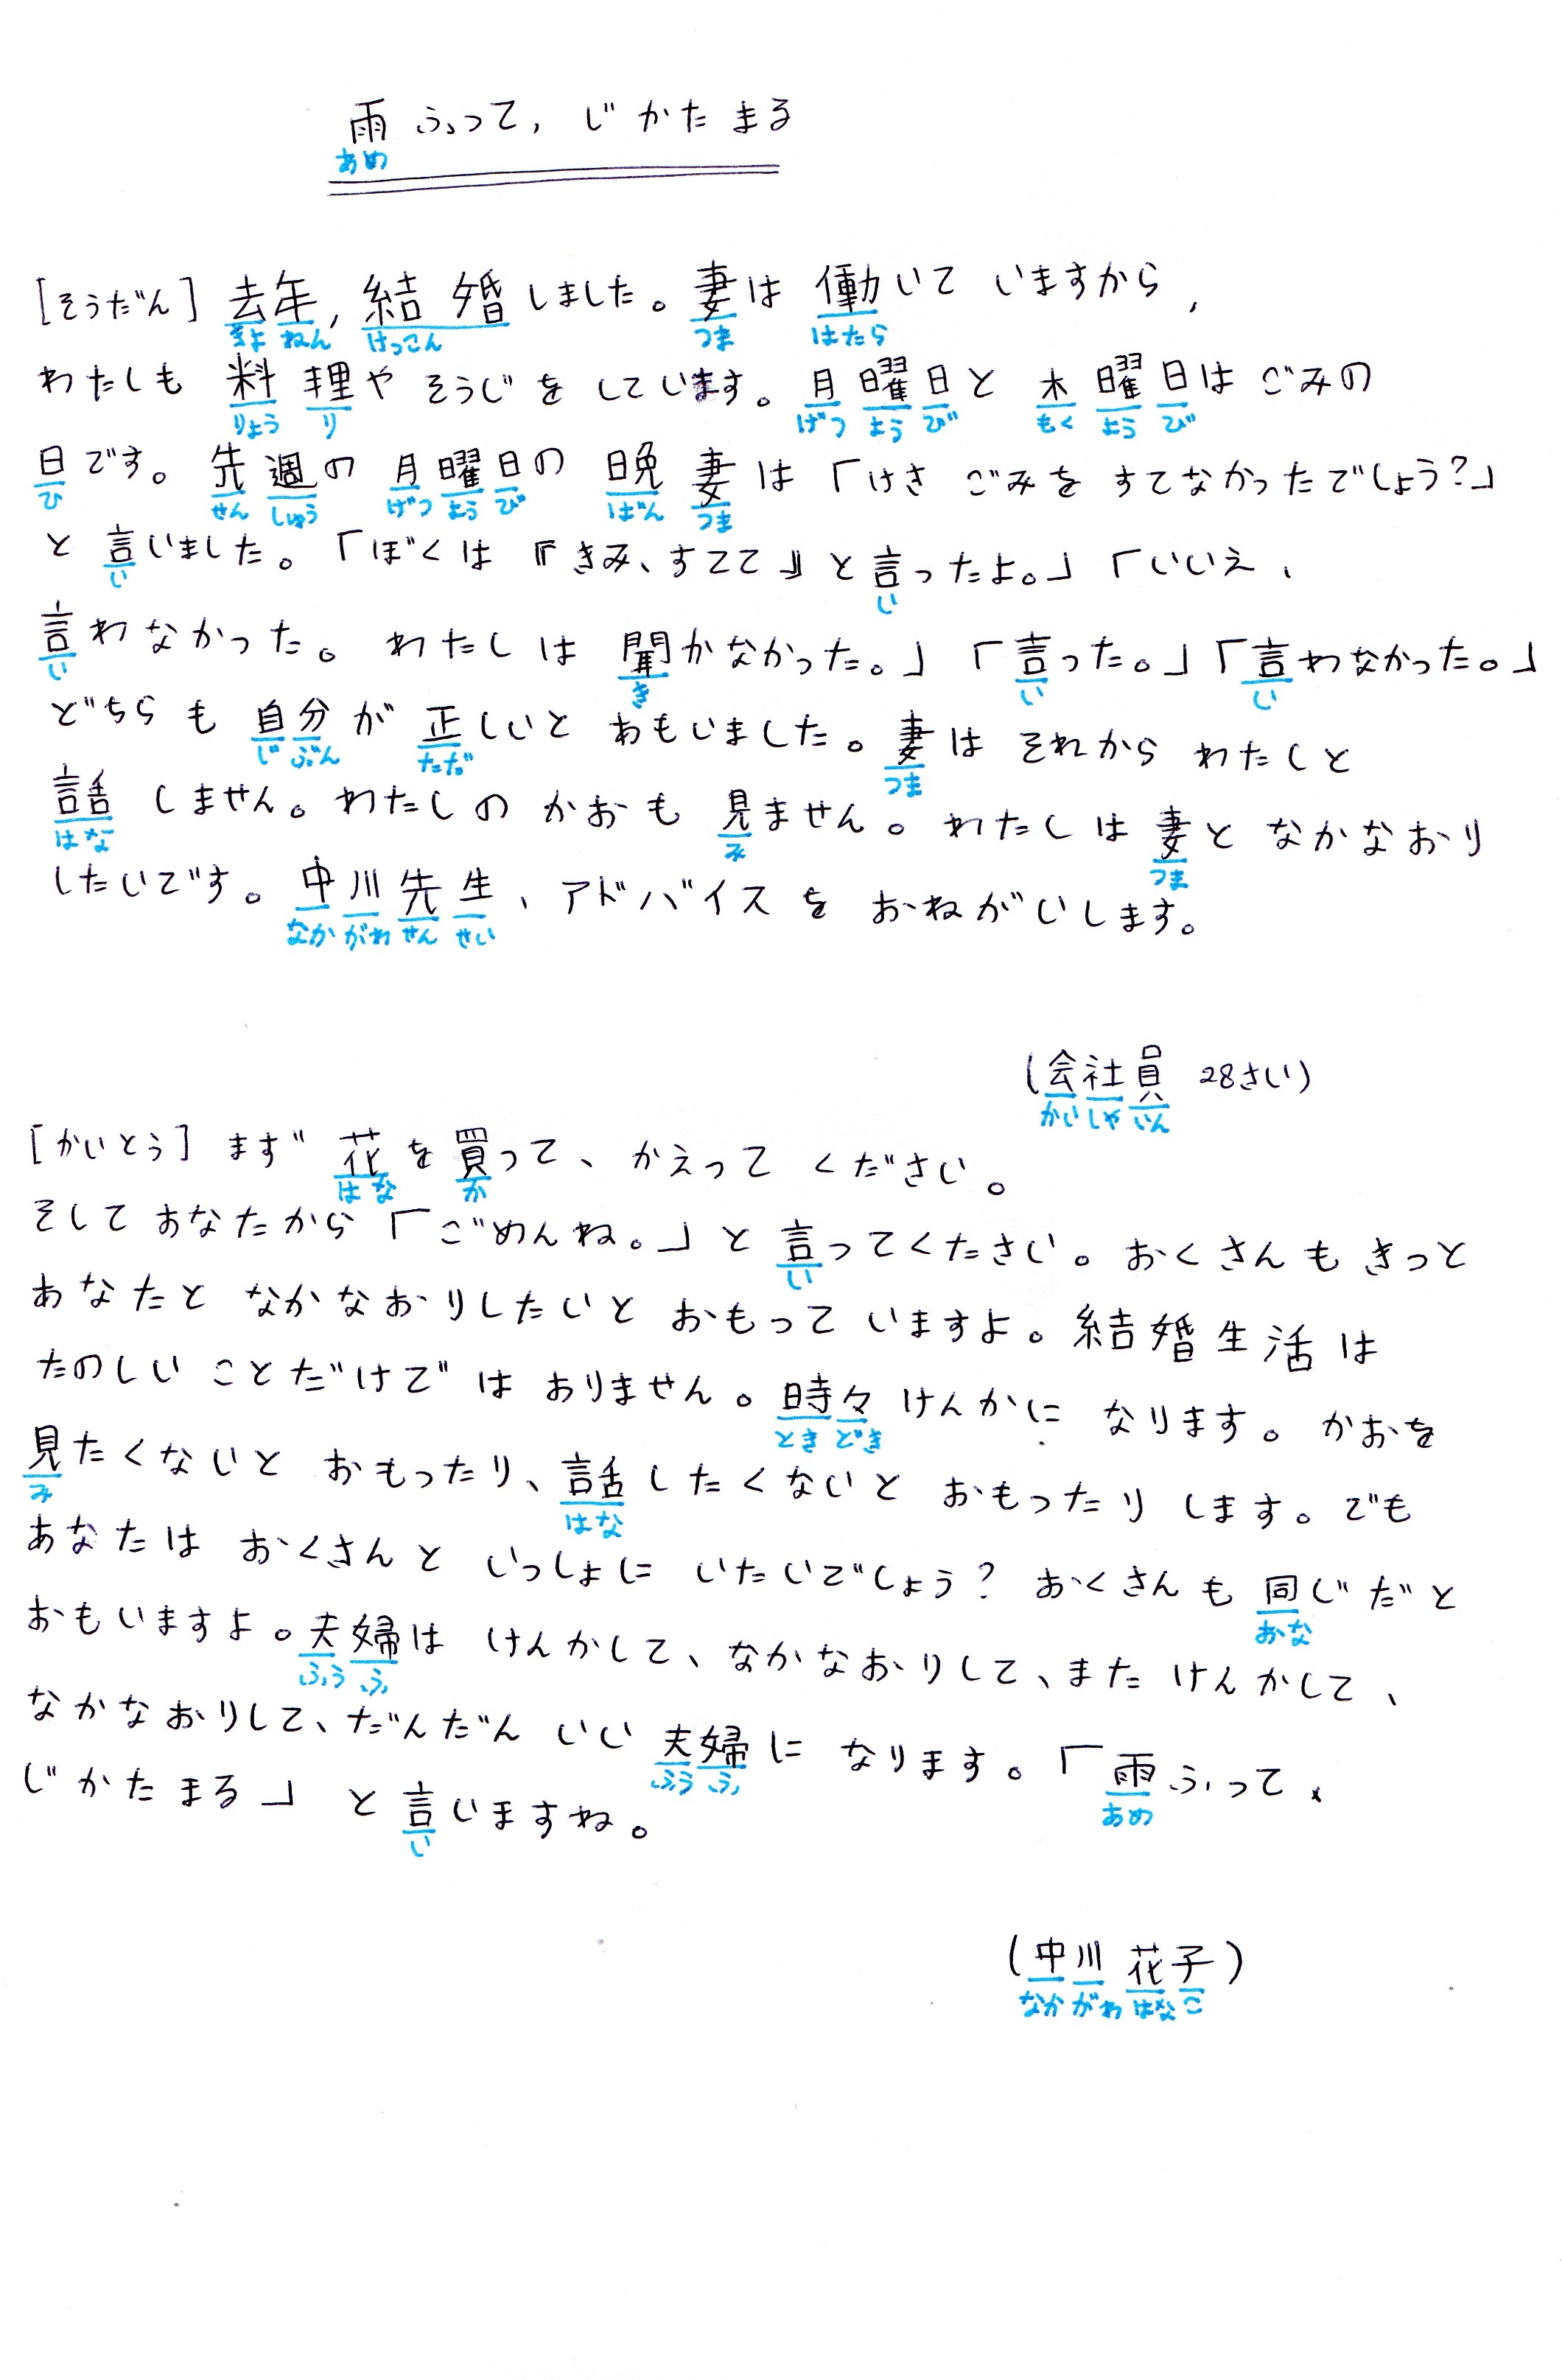 雨ふって, じかたまる
あめ
[そうだん] 去年, 結婚しました。妻は 働いて いますから,
きょ ねん けっこん つま はたら
わたしも 料理や そうじを しています。月曜日と 木曜日は ごみの
りょう り げつ よう び もく よう び
日です。先週の 月曜日の 晩 妻は「けさ ごみを すてなかったでしょう?」
ひ せん しゅう げつ よう び ばん つま
と 言いました。「ぼくは『きみ、すてて』と言ったよ。」「いいえ、
い い
言わなかった。わたしは 聞かなかった。」「言った。」「言わなかった。」
い き い い
どちらも 自分が 正しいと おもいました。妻は それから わたしと
じ ぶん ただ つま
話しません。わたしの かおも 見ません。わたしは 妻と なかなおり
はな み つま
したいです。中川先生、アドバイスを おねがいします。
なか がわ せん せい
(会社員 28さい)
かい しゃ いん
[かいとう] まず 花を買って、かえって ください。
はな か
そして あなたから「ごめんね。」と 言ってください。おくさんも きっと
い
あなたと なかなおりしたいと おもって いますよ。結婚生活は
たのしい ことだけでは ありません。時々 けんかに なります。かおを
とき どき
見たくないと おもったり、話したくないと おもったり します。でも
み はな
あなたは おくさんと いっしょに いたいでしょう? おくさんも 同じだと
おな
おもいますよ。夫婦は けんかして、なかなおりして、また けんかして、
ふう ふ
なかなおりして、だんだん いい 夫婦に なります。「雨ふって、
ふう ふ あめ
じかたまる」 と 言いますね。
い
(中川 花子)
なか がわ はな こ